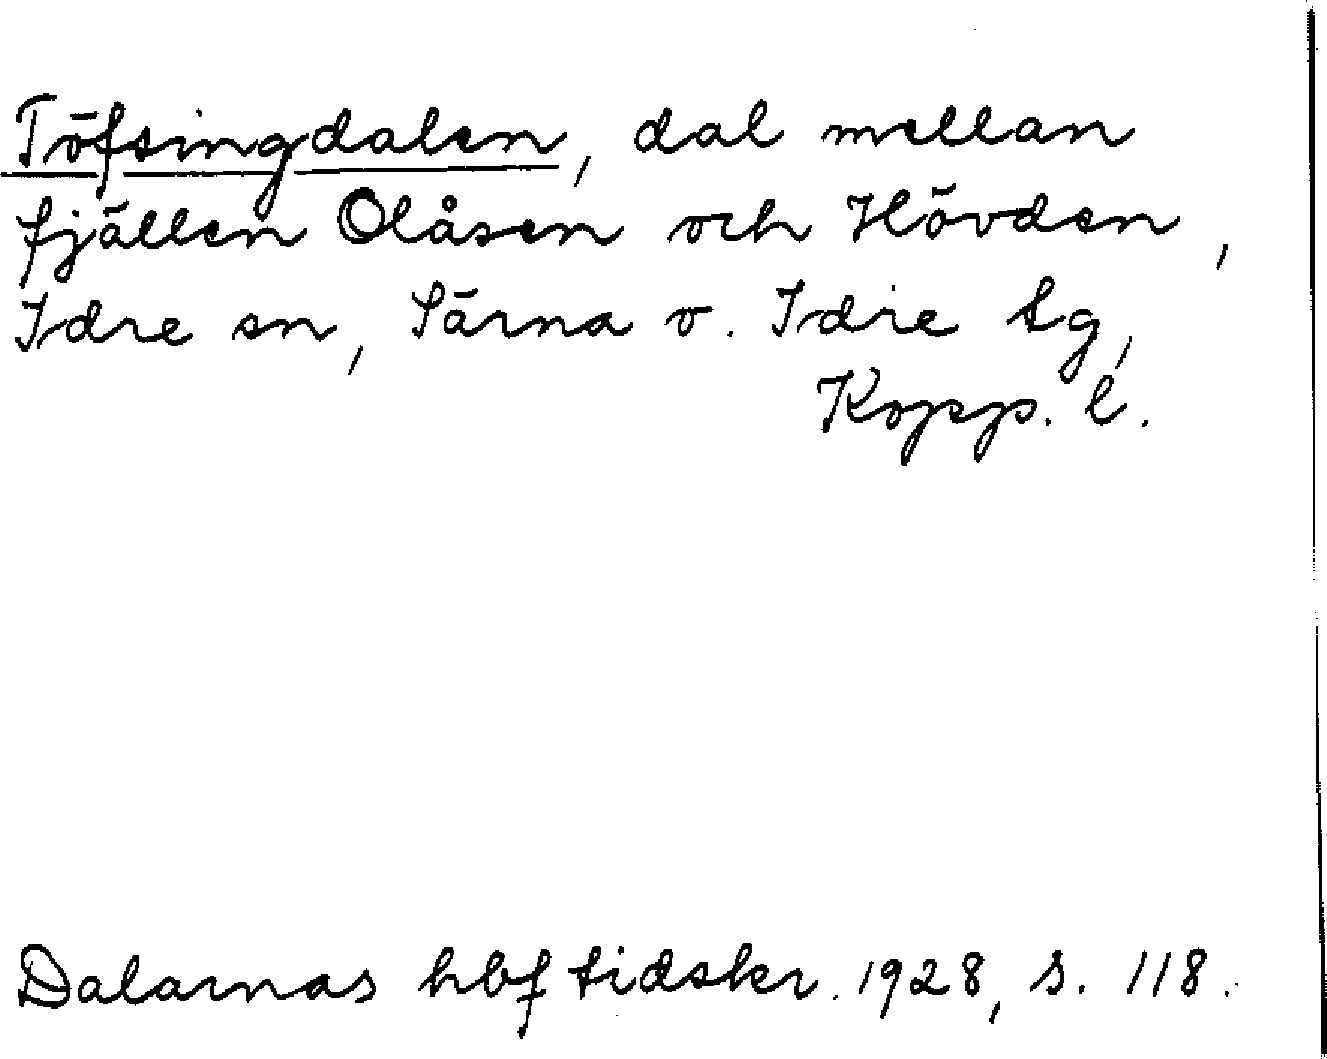 Töfsingdalen, dal mellan
fjällen Olåsen och Hövden,
Idre sn, Särna o. Idre tg,
Kopp. l.
Dalarnas hbf tidskr. 1928, s. 118.